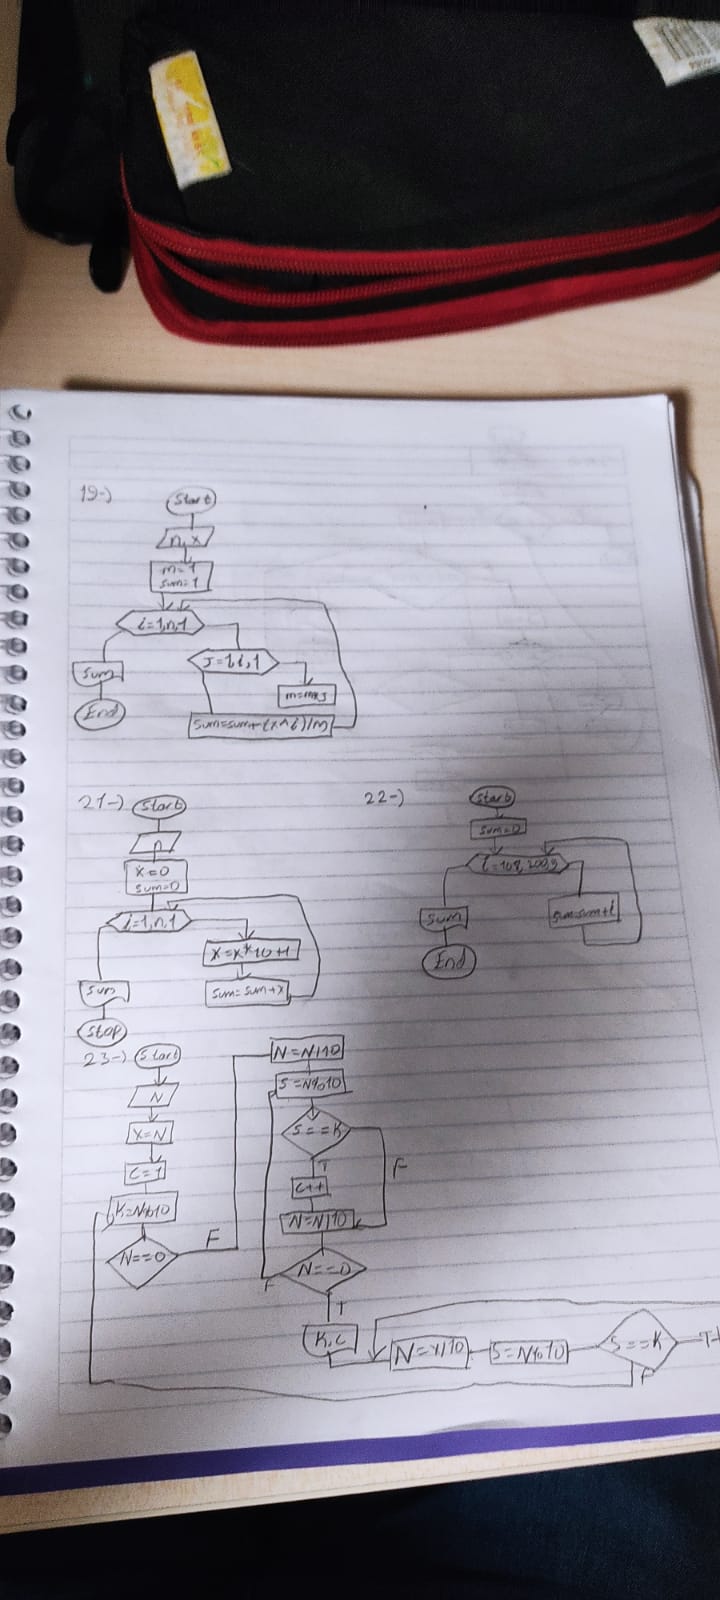 19-)
Start
n, x
m=1
sum=1
i=1,n,1
J=1,i,1
Sum
m=m*J
End
sum=sum+(x^i)/m
21-)
Start
n
x=0
sum=0
i=1,n,1
x=x*10+1
sum=sum+x
Sum
Stop
22-)
Start
sum=0
sum
sum=sum+i
End
23-)
Start
N
X=N
C=1
K=N%10
N==0
F
N=N/10
S=N%10
S==K
T
F
C++
N=N/10
N==0
F
T
K,C
S=N%10
S==K
T
F